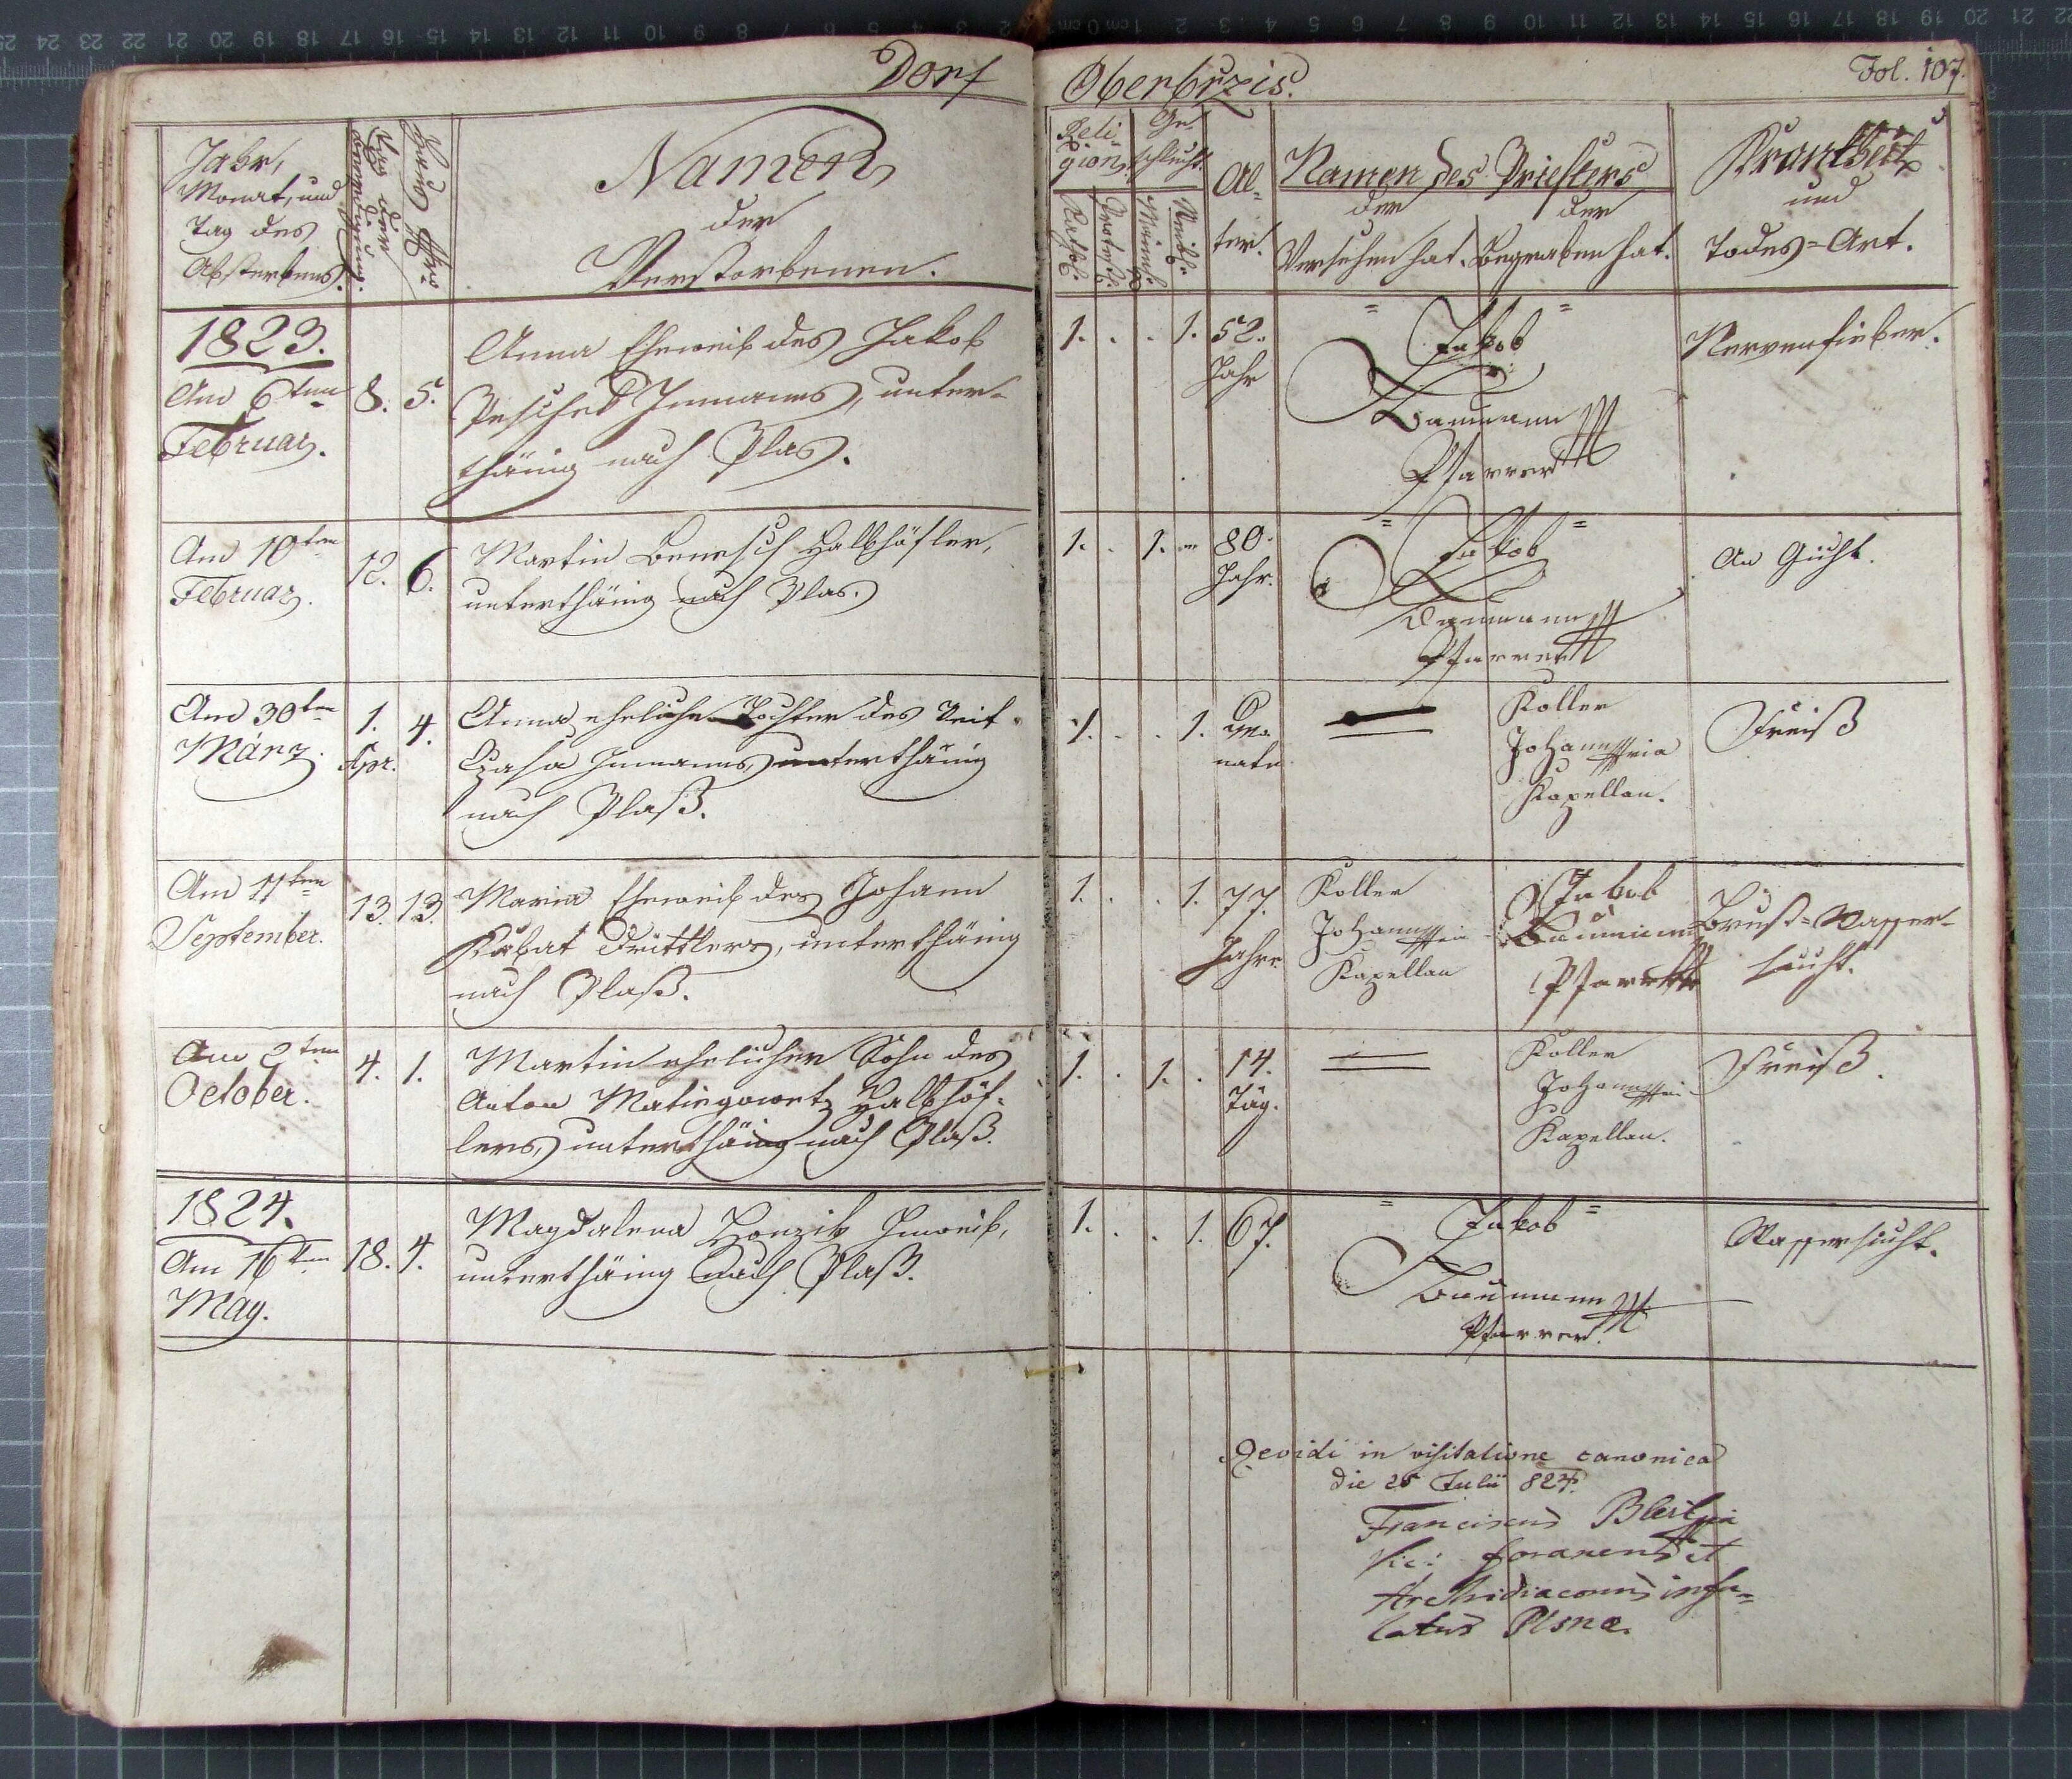 Dorf
Oberbrzis.
Fol. 107.
Jahr,
Monat, und
Tag des
Absterbens.
Tag der
Beerdigung.
Haus Nro
Namen
der
Verstorbenen.
Reli-
gion.
Kathol.
Protest.
Ge-
schlecht.
Männl.
Weibl.
Al-
ter.
Namen des Priesters
der
Versehen hat.
der
Begraben hat.
Krankheit
und
Todes=Art.
1823.
Am 6ten
Februar.
8.
5.
Anna Eheweib des Jakob
Peschek Inmanns, unter-
thänig nach Plas.
1. . . 1.
52.
Jahr
Jakob
Baumann
Pfarrer
Nervenfieber.
Am 10ten
Februar.
12.
6.
Martin Benesch Halbhöfler,
unterthänig nach Plas.
1. . 1. -
80.
Jahr.
Jakob
Baumann
Pfarrer
An Gicht.
Am 30ten
März.
1.
Apr.
4.
Anna eheliche Tochter des Veit
Inmanns, unterthänig
nach Plaß.
1. . . 1.
nate
Koller
Johann
Kapellan.
Freiß
Am 11ten
September.
13.
13.
Maria Eheweib des Johann
Kubat Drittlers, unterthänig
nach Plaß.
1. . . 1.
77.
Jahre
Koller
Johann
Kapellan
Jakob
Baumann
Pfarrer
Brust=Wasser-
sucht.
Am 2ten
October.
4.
1.
Martin ehelicher Sohn des
Anton Matiegowetz Halbhöf-
lers, unterthänig nach Plaß.
1. . 1. .
14.
Täg.
Koller
Johann
Kapellan.
Freiß.
1824.
Am 16ten
May.
18.
4.
Magdalena Honzik Inweib,
unterthänig nach Plaß.
1. . . 1.
67.
Jakob
Baumann
Pfarrer.
Wassersucht.
Revidi in visitatione canonica
die 25 Julii 824.
Franciscus
Vic: foraneus et
Archidiaconus infu-
latus Plsnae.